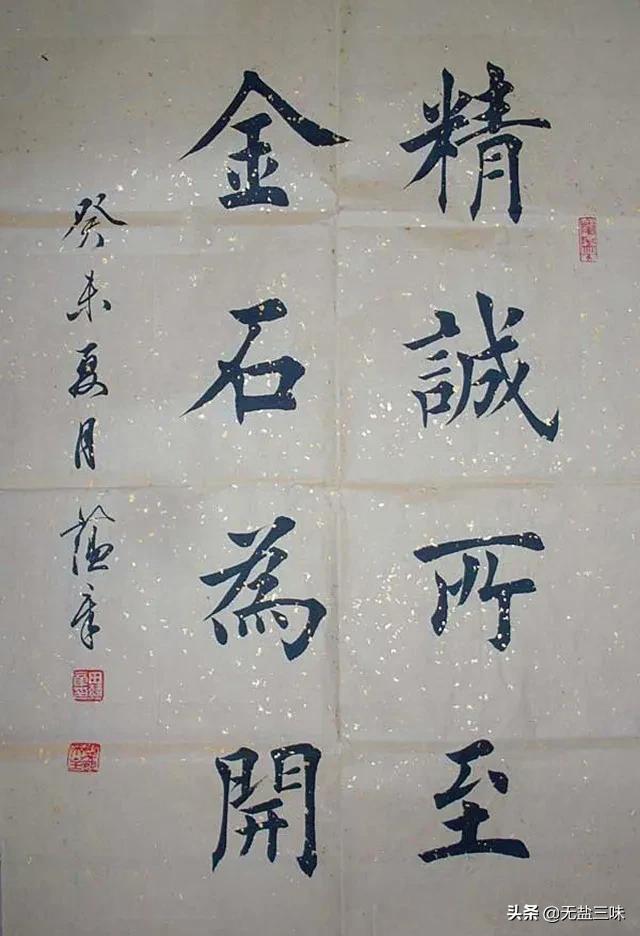 精誠所至
金石為開
癸未夏月蕴章
头条 @无盐三味